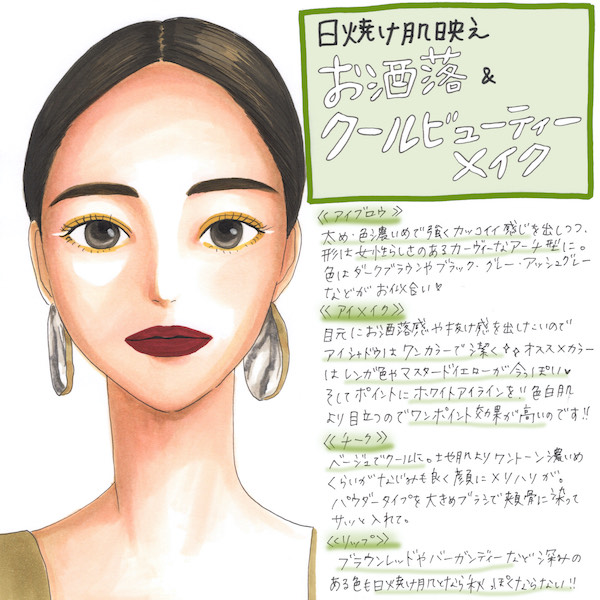 日焼け肌映え
お洒落&
クールビューティー
メイク
《アイブロウ》
太め・色濃いめで強くカッコイイ感じを出しつつ、
形は女性らしさのあるカーヴィーなアーチ型に。
色はダークブラウンやブラック・グレー・アッシュグレー
などがお似合い♥
《アイメイク》
目元にお洒落感や抜け感を出したいので
アイシャドウはワンカラーで潔く☆☆オススメカラー
はレンガ色やマスタードイエローが今っぽい♥
そしてポイントにホワイトアイラインを!!色白肌
より目立つのでワンポイント効果が高いのです!!
《チーク》
ベージュでクールに。地肌よりワントーン濃いめ
くらいがなじみも良く顔にメリハリが。
パウダータイプを大きめブラシで頬骨に沿って
サッと入れて。
《リップ》
ブラウンレッドやバーガンディーなど深みの
ある色も日焼け肌となら秋っぽくならない!!